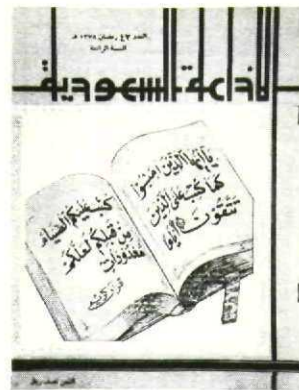 العدد ٤٣ رمضان ١٣٧٨ هـ
السنة الرابعة
الإذاعة السعودية
يأيها الذين امنوا
كتب عليكم الصيام
كما كتب على الذين
من قبلكم لعلكم
تتقون
معدودات
قرآن كريم